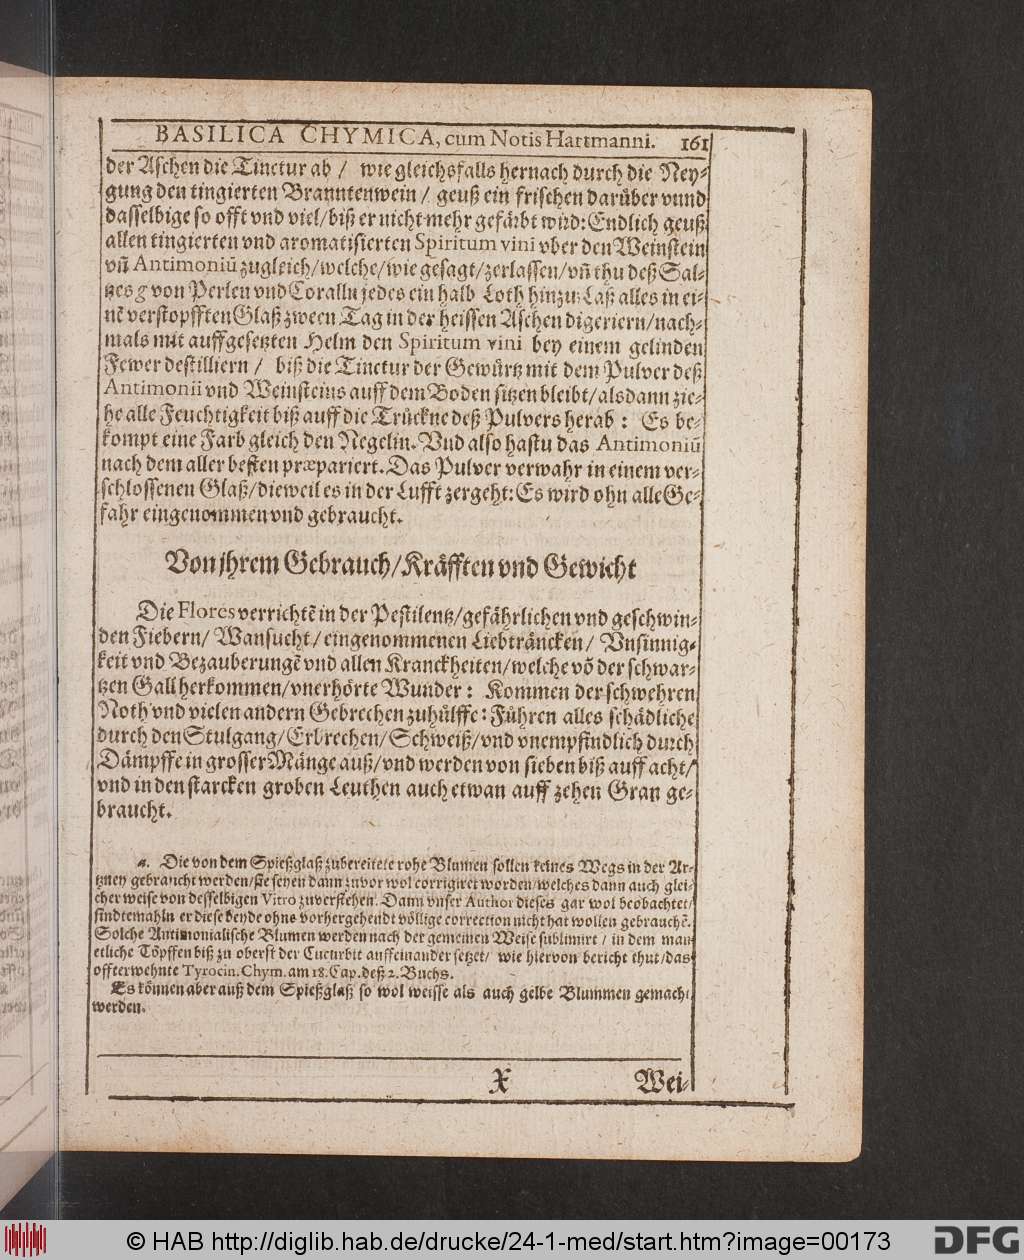 BASILICA CHYMICA, cum Notis Hartmanni. 161
der Aschen die Tinctur ab / wie gleichsfalls hernach durch die Ney-
gung den tingierten Branntenwein / geuß ein frischen darüber vnnd
dasselbige so offt vnd viel / biß er nicht mehr gefärbt wird: Endlich geuß
allen tingierten vnd aromatisierten Spiritum vini vber den Weinstein
vñ Antimoniũ zugleich / welche / wie gesagt / zerlassen / vñ thu deß Sal-
tzes g von Perlen vnd Coralln jedes ein halb Loth hinzu: Laß alles in ei-
nẽ verstopfften Glaß zween Tag in der heissen Aschen digeriern / nach-
mals mit auffgesetzten Helm den Spiritum vini bey einem gelinden
Fewer destilliern / biß die Tinctur der Gewürtz mit dem Pulver deß
Antimonii vnd Weinsteins auff dem Boden sitzen bleibt / alsdann zie-
he alle Feuchtigkeit biß auff die Trückne deß Pulvers herab : Es be-
kompt eine Farb gleich den Negelin. Vnd also hastu das Antimoniũ
nach dem aller besten præpariert. Das Pulver verwahr in einem ver-
schlossenen Glaß / dieweil es in der Lufft zergeht: Es wird ohn alle Ge-
fahr eingenommen vnd gebraucht.
Von jhrem Gebrauch / Kräfften vnd Gewicht
Die Flores verrichtẽ in der Pestilentz / gefährlichen vnd geschwin-
den Fiebern / Wansucht / eingenommenen Liebträncken / Vnsinnig-
keit vnd Bezauberungẽ vnd allen Kranckheiten / welche võ der schwar-
tzen Gall herkommen / vnerhörte Wunder : Kommen der schwehren
Noth vnd vielen andern Gebrechen zuhülffe: Führen alles schädliche
durch den Stulgang / Erbrechen / Schweiß / vnd vnempfindlich durch
Dämpffe in grosser Mänge auß / vnd werden von sieben biß auff acht /
vnd in den starcken groben Leuthen auch etwan auff zehen Gran ge-
braucht.
a. Die von dem Spießglaß zubereitete rohe Blumen sollen keines Wegs in der Ar-
tzney gebraucht werden / sie seyen dann zuvor wol corrigiret worden / welches dann auch glei-
cher weise von desselbigen Vitro zuverstehen. Dann vnser Author dieses gar wol beobachtet /
sindtemahln er diese beyde ohne vorhergehendt völlige correction nicht hat wollen gebrauchẽ.
Solche Antimonialische Blumen werden nach der gemeinen Weise sublimirt / in dem man
etliche Töpffen biß zu oberst der Cucurbit auffeinander setzet / wie hiervon bericht thut / das
offterwehnte Tyrocin. Chym. am 18. Cap. deß 2. Buchs.
Es können aber auß dem Spießglaß so wol weisse als auch gelbe Blummen gemacht
werden.
X Wei-
© HAB http://diglib.hab.de/drucke/24-1-med/start.htm?image=00173
DFG